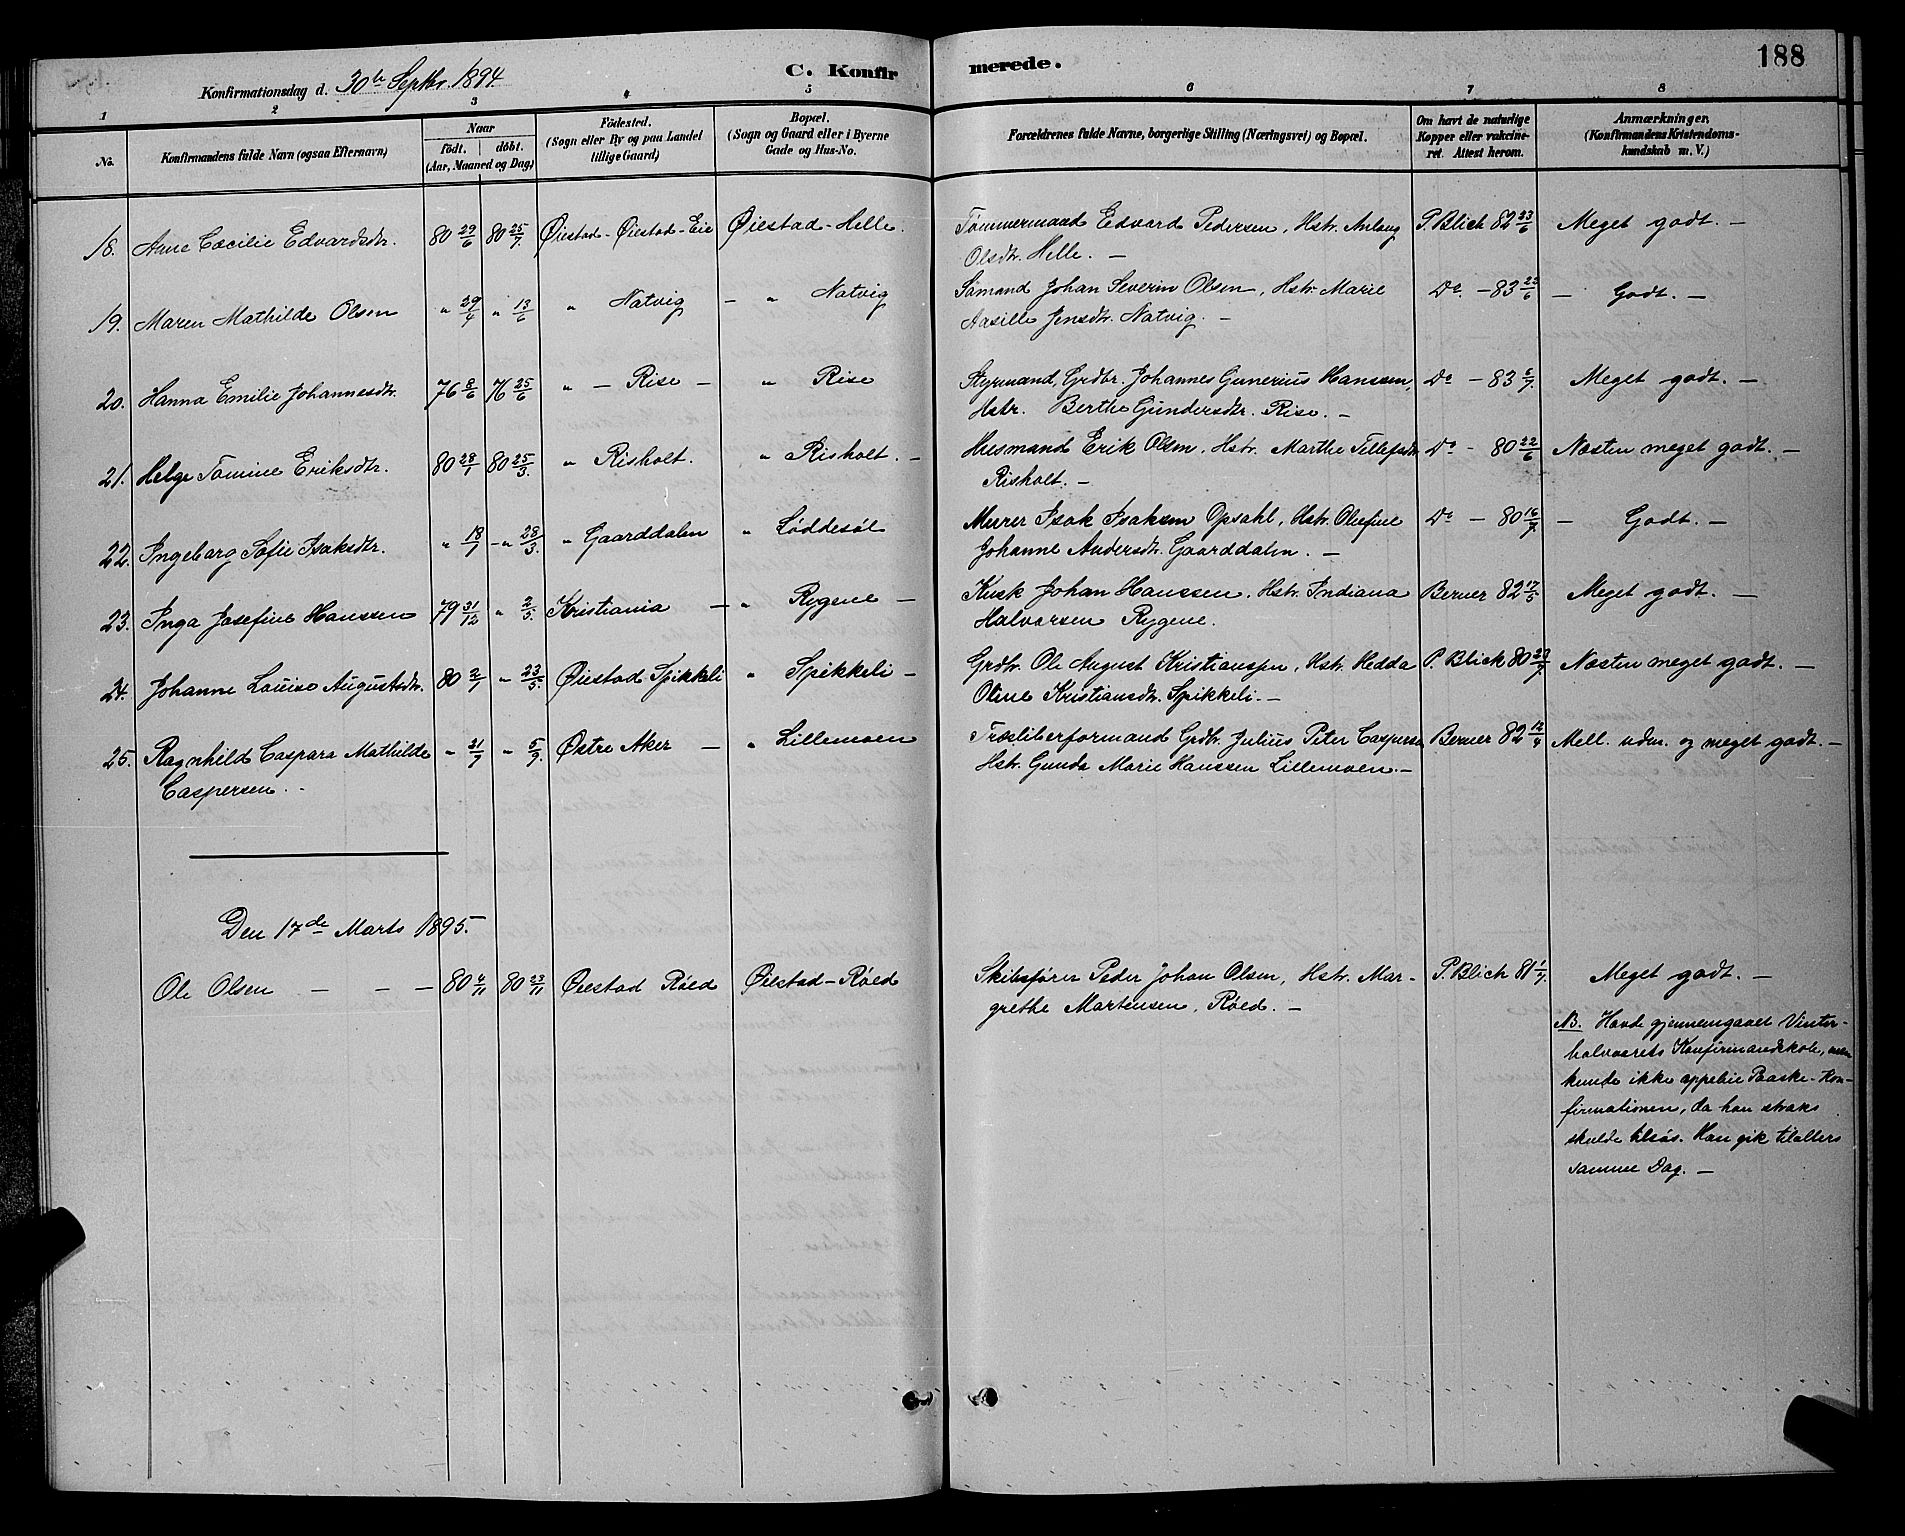 188
C. Konfirmerede.
Konfirmationsdag d. 30te Septbr. 1894.
1 2 3 4 5 6 7 8
No. Konfirmandens fulde Navn (ogsaa Efternavn) Naar födt. döbt. (Aar, Maaned og Dag) Födested. (Sogn eller By og paa Landet tillige Gaard) Bopæl. (Sogn og Gaard eller i Byerne Gade og Hus-No. Forældrenes fulde Navne, borgerlige Stilling (Næringsvei) og Bopæl. Om havt de naturlige Kopper eller vakcineret. Attest herom. Anmærkninger. (Konfirmandens Kristendomskundskab m. V.)
18. Anne Cæcilie Edvardsdtr. 80 29/6 80 25/7 Øiestad - Øiestad - Eie Øiestad - Helle. Tømmermand Edvard Pedersen, Hstr. Anlaug P. Blich 82 23/6 Meget godt. —
Olsdtr. Helle. —
19. Maren Mathilde Olsen " 29/4 " 13/6 " Natvig — " Natvig Sømand Johan Severin Olsen, Hstr. Marie Do. — 83 23/6 — Godt. —
Aasille Jensdtr. Natvig. —
20. Hanna Emilie Johannesdtr. 76 8/6 76 25/6 " — Rise — " Rise Styrmand, Grdbr. Johannes Gunerius Hanssen, Do — 83 6/7 Meget godt. —
Hstr. Berthe Gundersdtr. Rise. —
21. Helge Tomine Eriksdtr. 80 28/1 80 25/3 " Risholt. " Risholt. — Husmand Erik Olsen, Hstr. Marthe Tellefsdtr Do — 80 22/6 Næsten meget godt. —
Risholt. —
22. Ingeborg Sofie Isaksdtr. " 18/1 — " 28/3 " Gaarddalen " Løddesøl Murer Isak Isaksen Opsahl, Hstr. Olufine Do — 80 16/7 — Godt. —
Johanne Andersdtr. Gaarddalen. —
23. Inga Josefine Hanssen 79 31/12 " 2/5 Kristiania — " Rygene — Kusk Johan Hanssen, Hstr. Indiana Berner 82 17/5 Meget godt. —
Halvorsen Rygene.
24. Johanne Louise Augustsdtr. 80 2/1 " 23/5 Øiestad Spikkeli " Spikkeli — Grdbr. Ole August Kristianssen, Hstr. Hedda P. Blich 80 23/7 Næsten meget godt. —
Oline Kristiansdtr. Spikkeli. —
25. Ragnhild Caspara Mathilde " 31/7 " 5/9 Østre Aker — " Lillemoen Træsliberformand Grdbr. Julius Peter Caspersen Berner 82 12/4 Mell. udm. og meget godt. —
Caspersen. Hstr. Gunda Marie Hanssen Lillemoen. —
Den 17de Marts 1895.
Ole Olsen — — — 80 4/11 80 23/11 Øiestad Røed Øiestad - Røed Skibsfører Peder Johan Olsen, Hstr. Mar- P. Blich 81 1/7 Meget godt. —
grethe Martensen, Røed. —
NB. Havde gjennemgaaet Vinter-
halvaarets Konfirmandskole, men
kunde ikke oppebie Paaske-Kon-
firmationen, da han straks
skulde tilsøs. Han gik tilalters
samme Dag. —